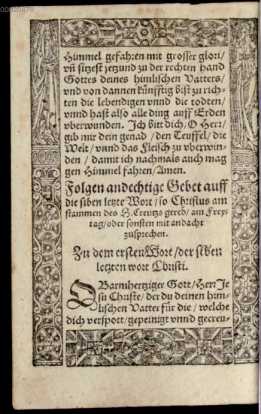 Himmel gefahren mit grosser glori/
vñ sitzest jetzund zu der rechten hand
Gottes deines himlischen Vatters/
vnd von dannen künfftig bist zu rich-
ten die lebendigen vnnd die todten/
vnnd hast also alle ding auff Erden
vberwunden. Ich bitt dich/ O Herr/
gib mir dein genad / den Teuffel / die
Welt / vnnd das Fleisch zu vberwin-
den / damit ich nachmals auch mag
gen Himmel fahren/ Amen.
Folgen andechtige Gebet auff
die siben letzte Wort / so Christus am
stammen des H. Creutzs geredt/ am Frey-
tag/ oder sonsten mit andacht
zusprechen.
Zu dem ersten Wort / der siben
letzten wort Christi.
O Barmhertziger Gott/ Herr Je
su Christe/ der du deinen him-
lischen Vatter für die / welche
dich verspott/ gepeinigt vnnd gecreu-